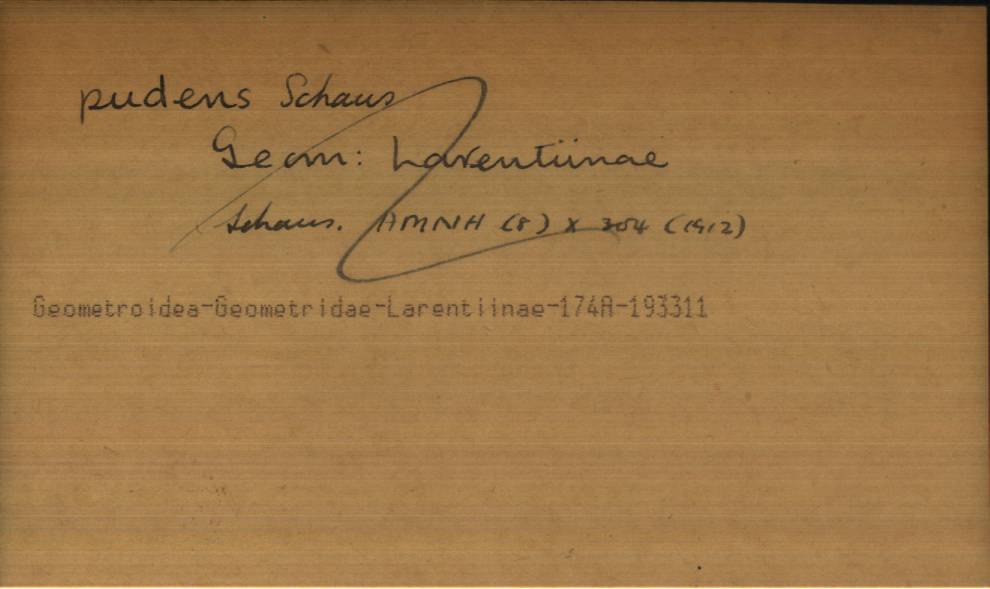 pudens Schaus
Geom: Larentiinae
Schaus. AMNH (8) X 304 (1912)
Geometroidea-Geometridae-Larentiinae-174A-193311